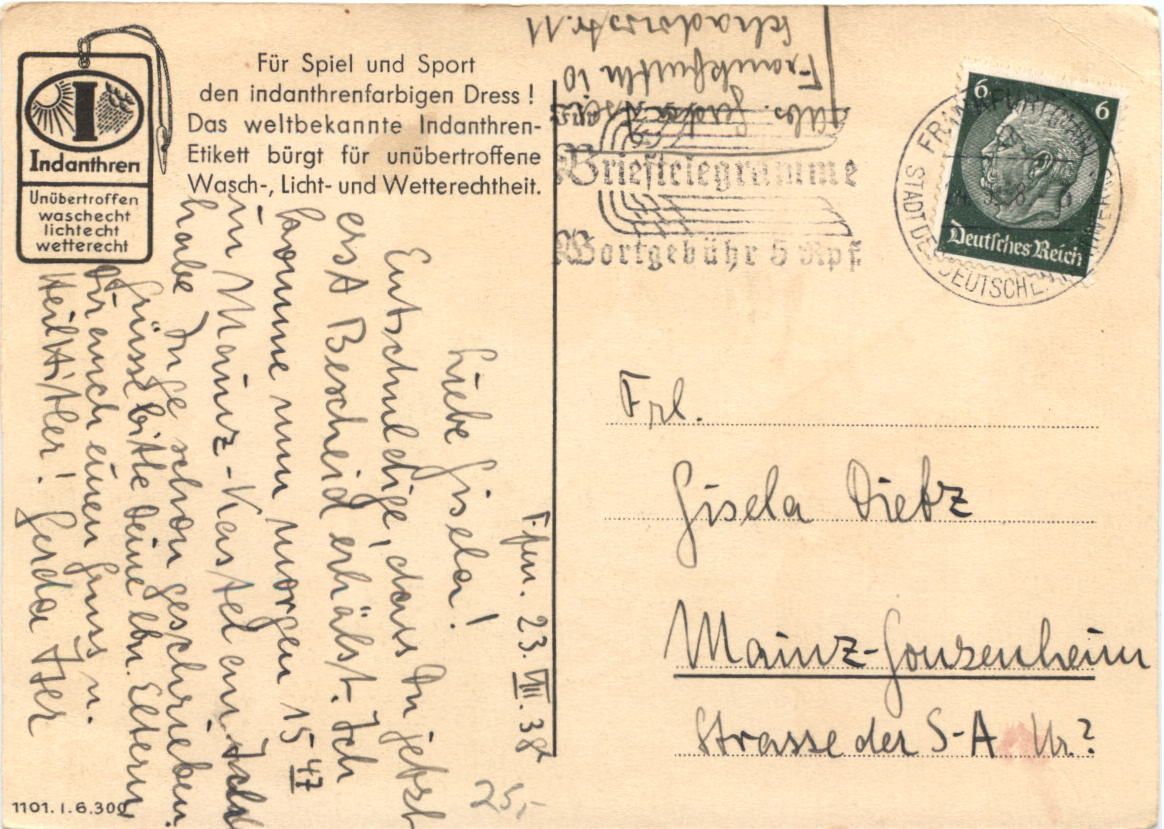 Indanthren
Unübertroffen
waschecht
lichtecht
wetterecht
Für Spiel und Sport
den indanthrenfarbigen Dress!
Das weltbekannte Indanthren-
Etikett bürgt für unübertroffene
Wasch-, Licht- und Wetterechtheit.
Abs. Gerda
Frankfurt/M 10
Schadowstr. 11
Brieftelegramme
Wortgebühr 5 Rpf
FRANKFURT (MAIN)
STADT DES DEUTSCHEN HANDWERKS
6 6
Deutsches Reich
Ffm. 23. VIII. 38
Liebe Gisela!
Entschuldige, dass Du jetzt
erst Bescheid erhälst. Ich
komme nun morgen 15 47
in Mainz-Kastel an. Ich
habe Inge schon geschrieben.
Grüsse bitte Deine lbn. Eltern
Dir auch einen Gruss u.
Heil Hitler! Gerda
25,-
Frl.
Gisela Dietz
Mainz-Gonsenheim
Strasse der S-A Nr.?
1101. I. 6. 300